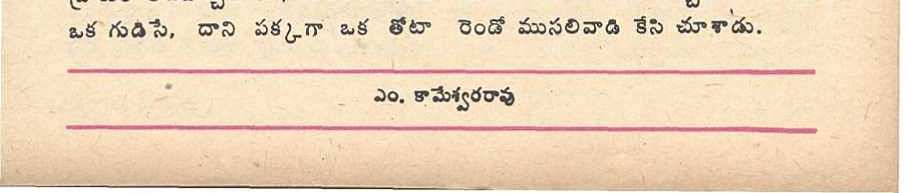 ఒక గుడిసే, దాని పక్కగా ఒక తోటా రెండో ముసలివాడి కేసి చూశాడు.
ఎం. కామేశ్వరరావు